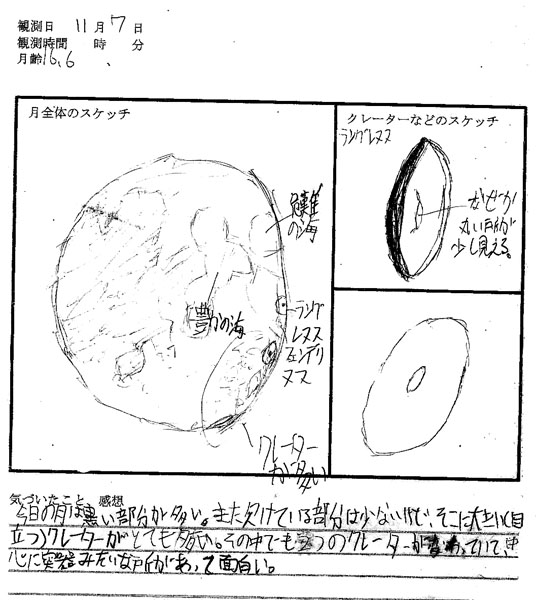 観測日 11月7日
観測時間 時 分
月齢16.6
月全体のスケッチ
危難
の海
豊かの海
ラング
レヌス
クレーター
が多い
クレーターなどのスケッチ
ラングレヌス
なぜか
丸い所が
少し見える。
気づいたこと 感想
今日の月は黒い部分が多い。また欠けている部分は少ないけど、そこに大きい目
立つクレーターがとても多い。その中でも つのクレーターが わっていて、中
心に突起みたいな所があって面白い。